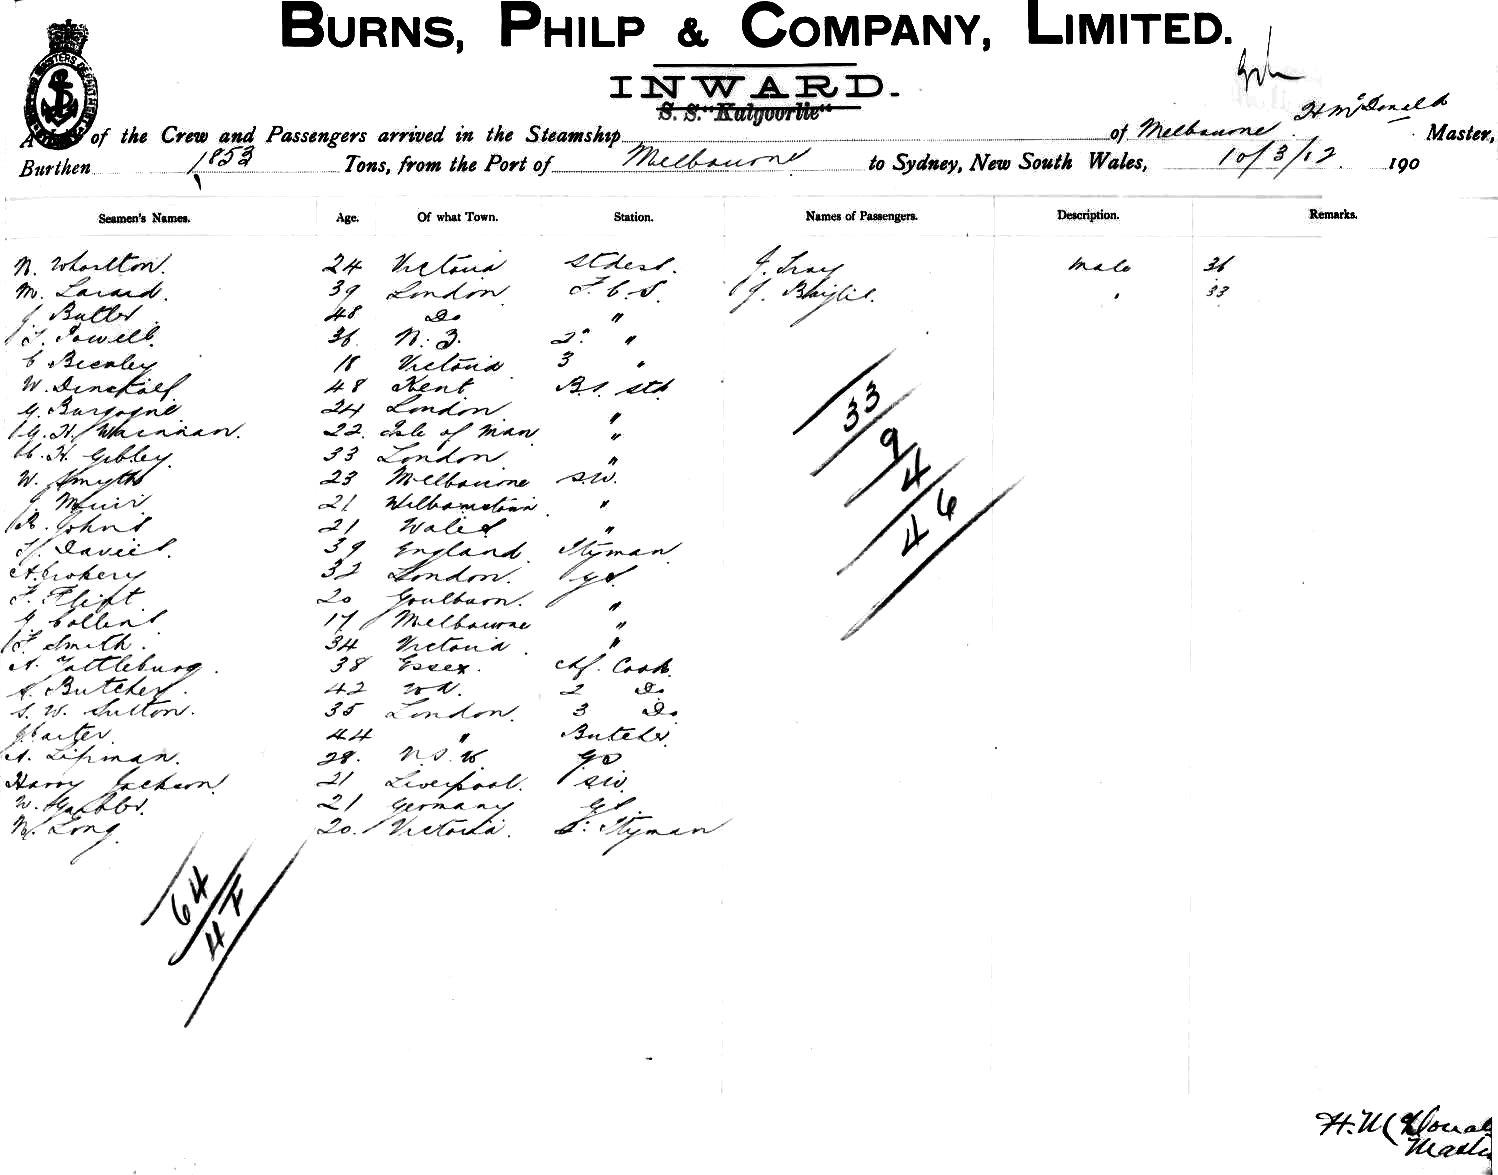 BURNS, PHILP & COMPANY, LIMITED.
INWARD.
S. S. "Kalgoorlie"
H McDonald
of the Crew and Passengers arrived in the Steamship of Melbourne Master,
Burthen 1853 Tons, from the Port of Melbourne to Sydney, New South Wales, 10/3/12 190
Seamen's Names. Age. Of what Town. Station. Names of Passengers. Description. Remarks.
N. Wharlton. 24 Victoria Stdess. J. Male 36
M. 39 London F.C.S. J. " 33
J Butler 48 Do "
J. Powell. 36 N. Z. 2nd "
C 18 Victoria 3 "
W. 48 Kent B.S. Std
G. Burgogne 24 London "
G. H. 22. Isle of Man "
C. H. Gibley. 33 London "
W. Smyth 23 Melbourne S.W.
J. Muir 21 Williamstown "
R. Johns 21 Wales "
H. Davies. 39 England Ptyman
A. Crokery 32 London. GS.
F. Flift 20 Goulburn. "
J. Collins 17 Melbourne "
F. Smith. 34 Victoria. "
A. Tattleburg. 38 Essex. Chf. Cook.
A. Butcher. 42 WA. 2 Do
S. W. Sutton. 35 London. 3 Do
J Carter. 44 " Butcher
A. Lipman. 28. N.S.W. GS
Harry Jackson. 21 Liverpool. SW.
W. 21 Germany GS.
N. Long 20. Victoria. S. Ptyman
33
9
4
46
64
4F
H. McDonald
Master